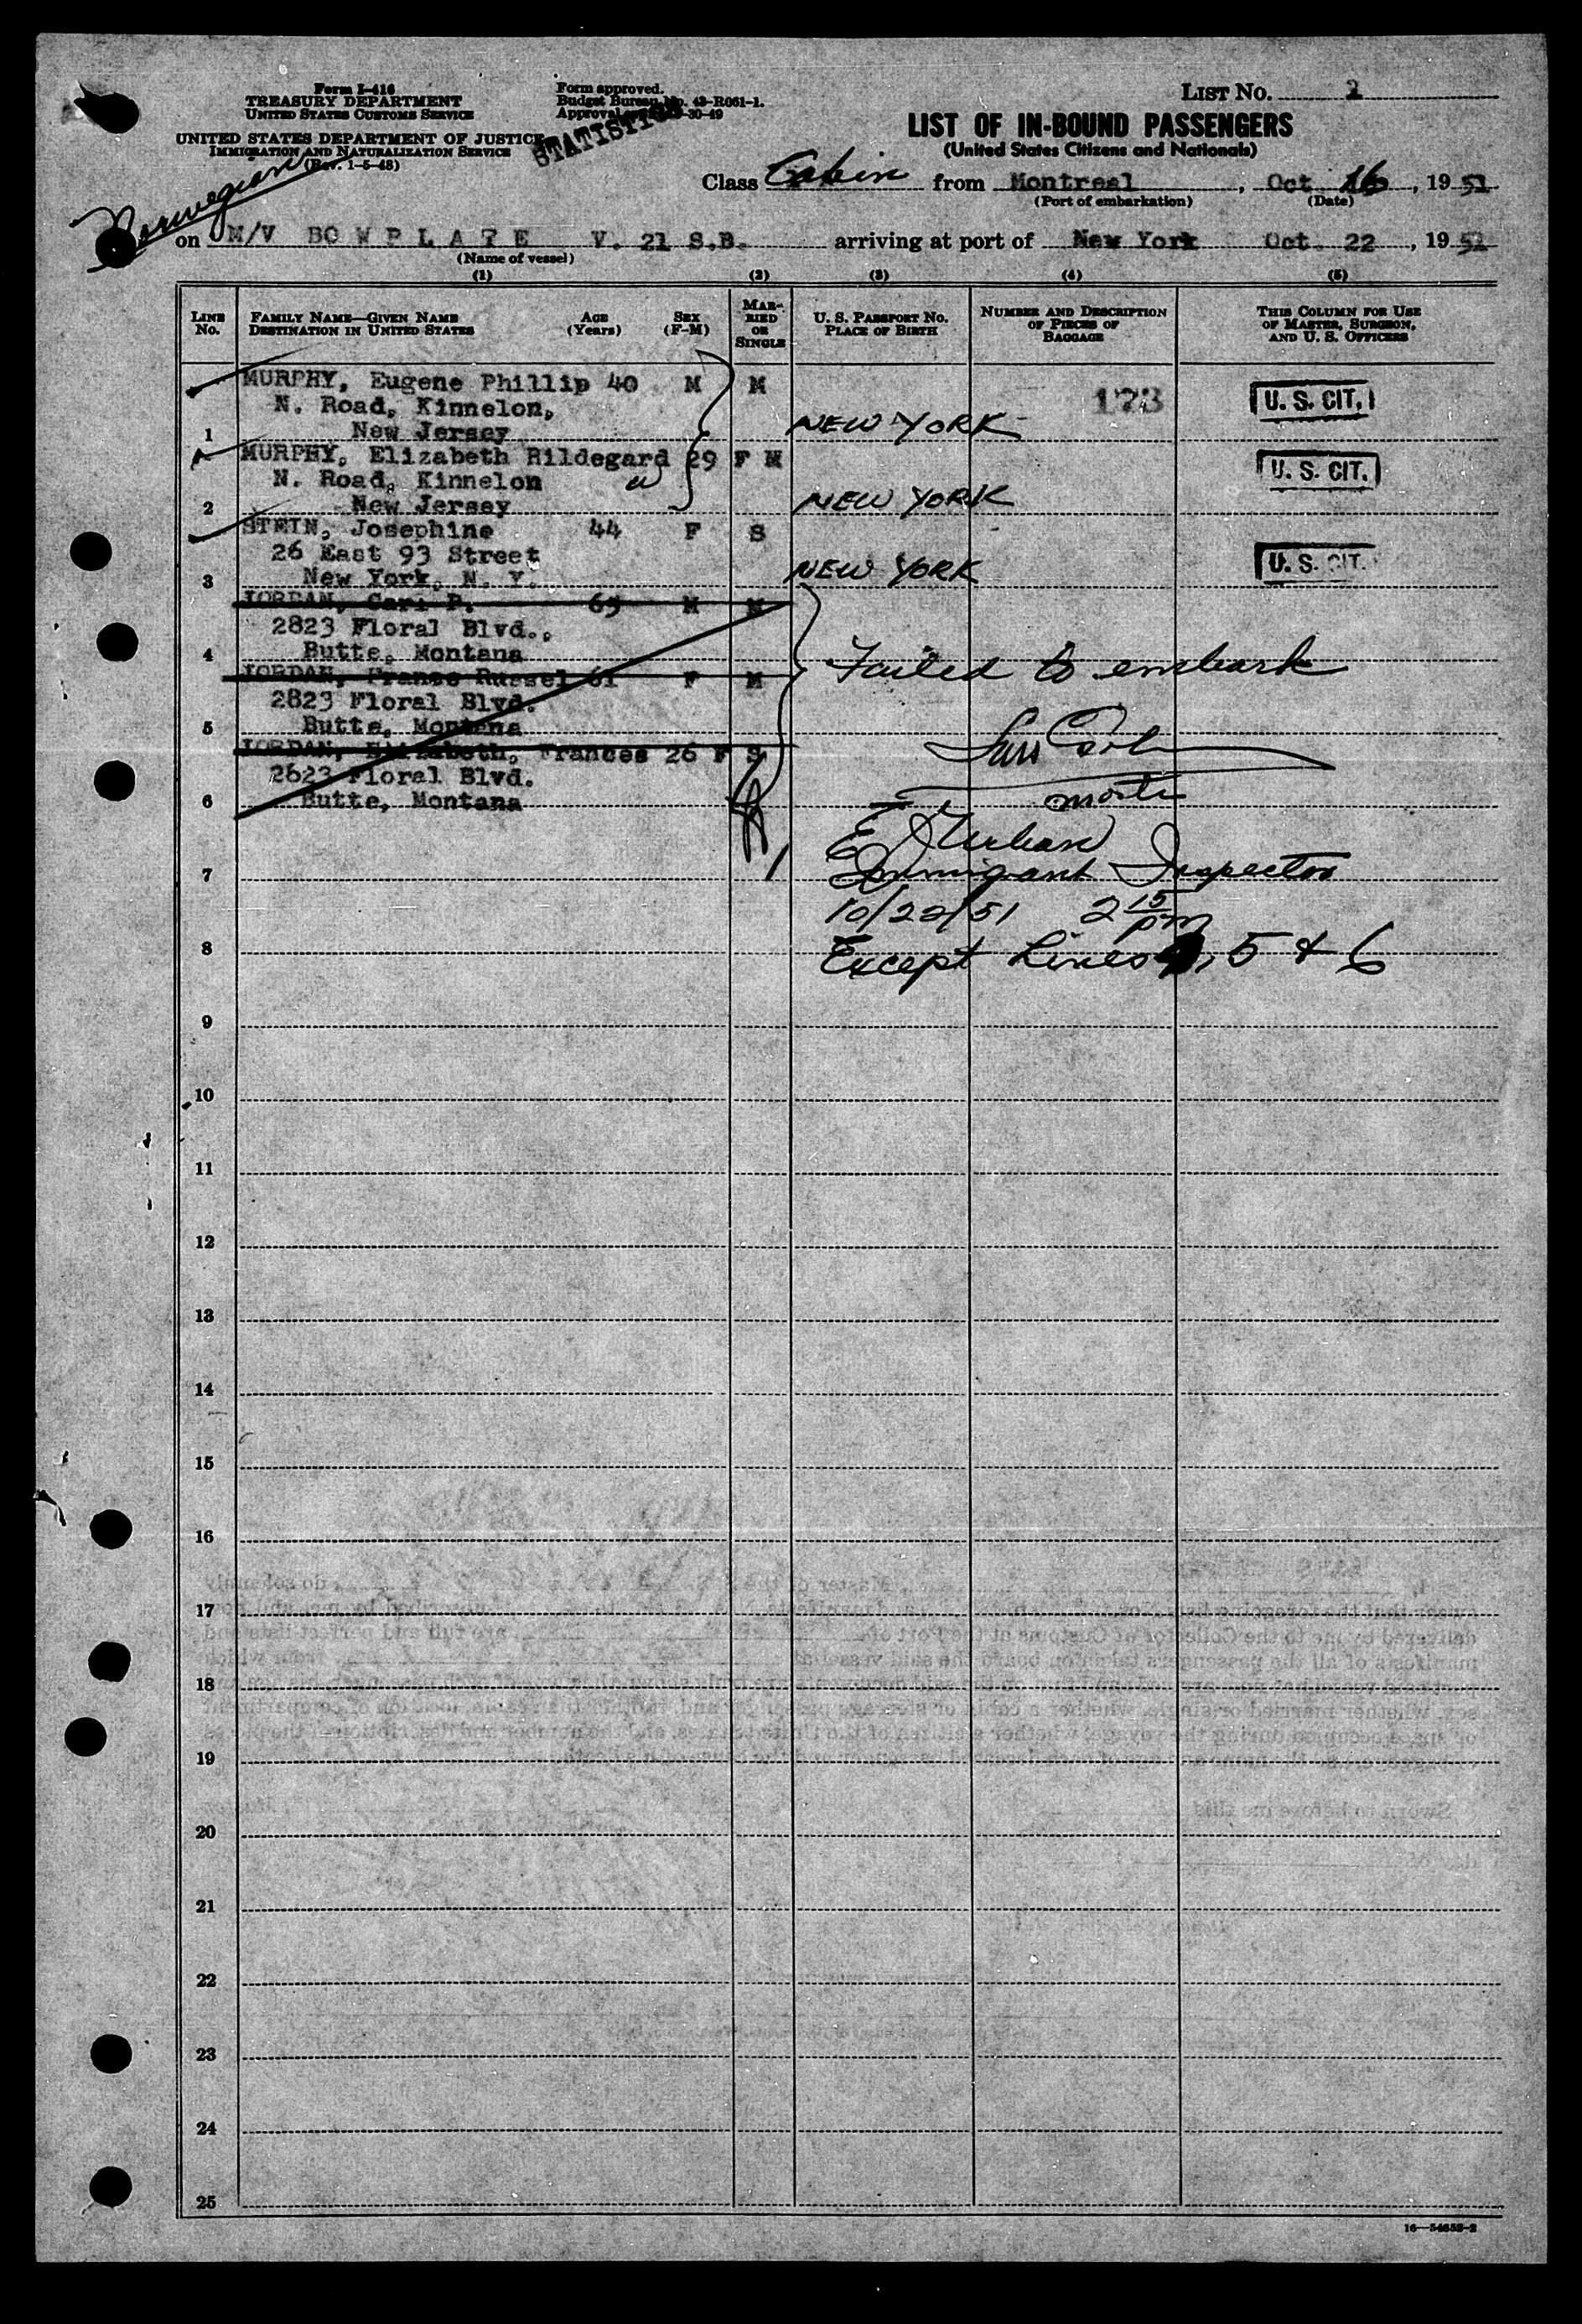 Form I-416
TREASURY DEPARTMENT
UNITED STATES CUSTOMS SERVICE
UNITED STATES DEPARTMENT OF JUSTICE
IMMIGRATION AND NATURALIZATION SERVICE
(Rev. 1-5-48)
Form approved.
Budget Bureau No. 43-R061-1.
Approval 30-49
STATISTICS
Norwegian
LIST No. 1
LIST OF IN-BOUND PASSENGERS
(United States Citizens and Nationals)
Class Cabin from Montreal, Oct 16, 1951
(Port of embarkation) (Date)
on M/V BOWPLATE V. 21 S.B. arriving at port of New York Oct. 22, 1951
(Name of vessel)
(1) (2) (3) (4) (5)
LINE No.
FAMILY NAME—GIVEN NAME
DESTINATION IN UNITED STATES
AGE (Years)
SEX (F-M)
MARRIED OR SINGLE
U. S. PASSPORT NO.
PLACE OF BIRTH
NUMBER AND DESCRIPTION OF PIECES OF BAGGAGE
THIS COLUMN FOR USE OF MASTER, SURGEON, AND U. S. OFFICERS
MURPHY, Eugene Phillip 40 M M 173 U. S. CIT.
N. Road, Kinnelon,
1 New Jersey NEW YORK
MURPHY, Elizabeth Hildegard 29 F M U. S. CIT.
N. Road, Kinnelon
2 New Jersey NEW YORK
STEIN, Josephine 44 F S
26 East 93 Street U. S. CIT.
3 New York, N. Y. NEW YORK
JORDAN, Carl P. 65 M M
2823 Floral Blvd.,
4 Butte, Montana Failed to embark
JORDAN, France Russel 61 F M
2823 Floral Blvd.
5 Butte, Montana
JORDAN, Elizabeth, Frances 26 F S
2623 Floral Blvd.
6 Butte, Montana
7 Immigrant Inspector
10/22/51 2 15 pm
8 Except Lines 4, 5 & 6
9
10
11
12
13
14
15
16
17
18
19
20
21
22
23
24
25